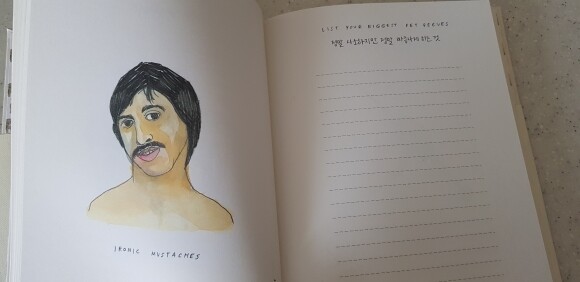 IRONIC MUSTACHES
LIST YOUR BIGGEST PET PEEVES
정말 사소하지만, 정말 짜증나게 하는 것